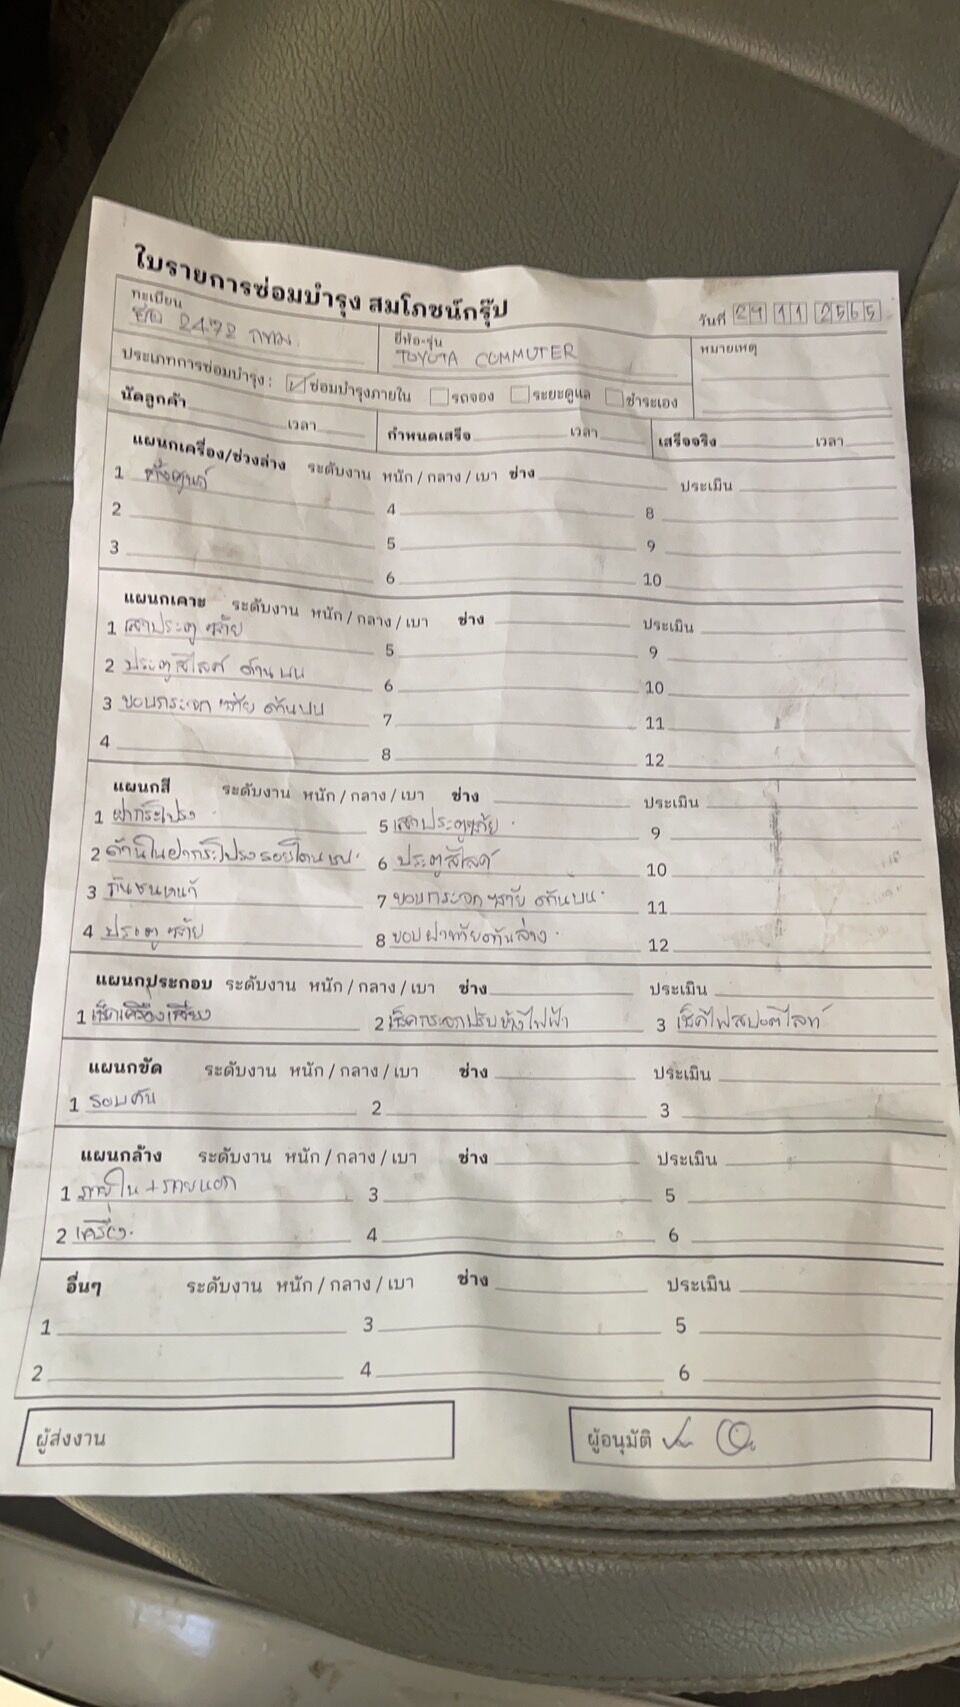 ใบรายการซ่อมบำรุง สมโภชน์กรุ๊ป
วันที่ 29 11 2565
ทะเบียน 2472 กทม
ยี่ห้อ-รุ่น TOYOTA COMMUTER
หมายเหตุ
ประเภทการซ่อมบำรุง : ✓ ซ่อมบำรุงภายใน รถจอง ระยะดูแล ชำระเอง
นัดลูกค้า เวลา กำหนดเสร็จ เวลา เสร็จจริง เวลา
แผนกเครื่อง/ช่วงล่าง ระดับงาน หนัก/กลาง/เบา ช่าง ประเมิน
1 ตั้งศูนย์
2 4 8
3 5 9
6 10
แผนกเคาะ ระดับงาน หนัก/กลาง/เบา ช่าง ประเมิน
1 เสาประตู ซ้าย 5 9
2 ประตูสไลด์ ด้านบน 6 10
3 ขอบกระจก ซ้าย ด้านบน 7 11
4 8 12
แผนกสี ระดับงาน หนัก/กลาง/เบา ช่าง ประเมิน
1 ฝากระโปรง 5 เสาประตูซ้าย 9
2 ด้านในฝากระโปรงรอยโดนชน 6 ประตูสไลด์ 10
3 กันชนหน้า 7 ขอบกระจกซ้าย ด้านบน 11
4 ประตู ซ้าย 8 ขอบฝาท้ายด้านล่าง 12
แผนกประกอบ ระดับงาน หนัก/กลาง/เบา ช่าง ประเมิน
1 เช็คเครื่องเสียง 2 เช็คกระจกปรับข้างไฟฟ้า 3 เช็คไฟสปอตไลท์
แผนกขัด ระดับงาน หนัก/กลาง/เบา ช่าง ประเมิน
1 รอบคัน 2 3
แผนกล้าง ระดับงาน หนัก/กลาง/เบา ช่าง ประเมิน
1 ภายใน + ภายนอก 3 5
2 เครื่อง 4 6
อื่นๆ ระดับงาน หนัก/กลาง/เบา ช่าง ประเมิน
1 3 5
2 4 6
ผู้ส่งงาน ผู้อนุมัติ